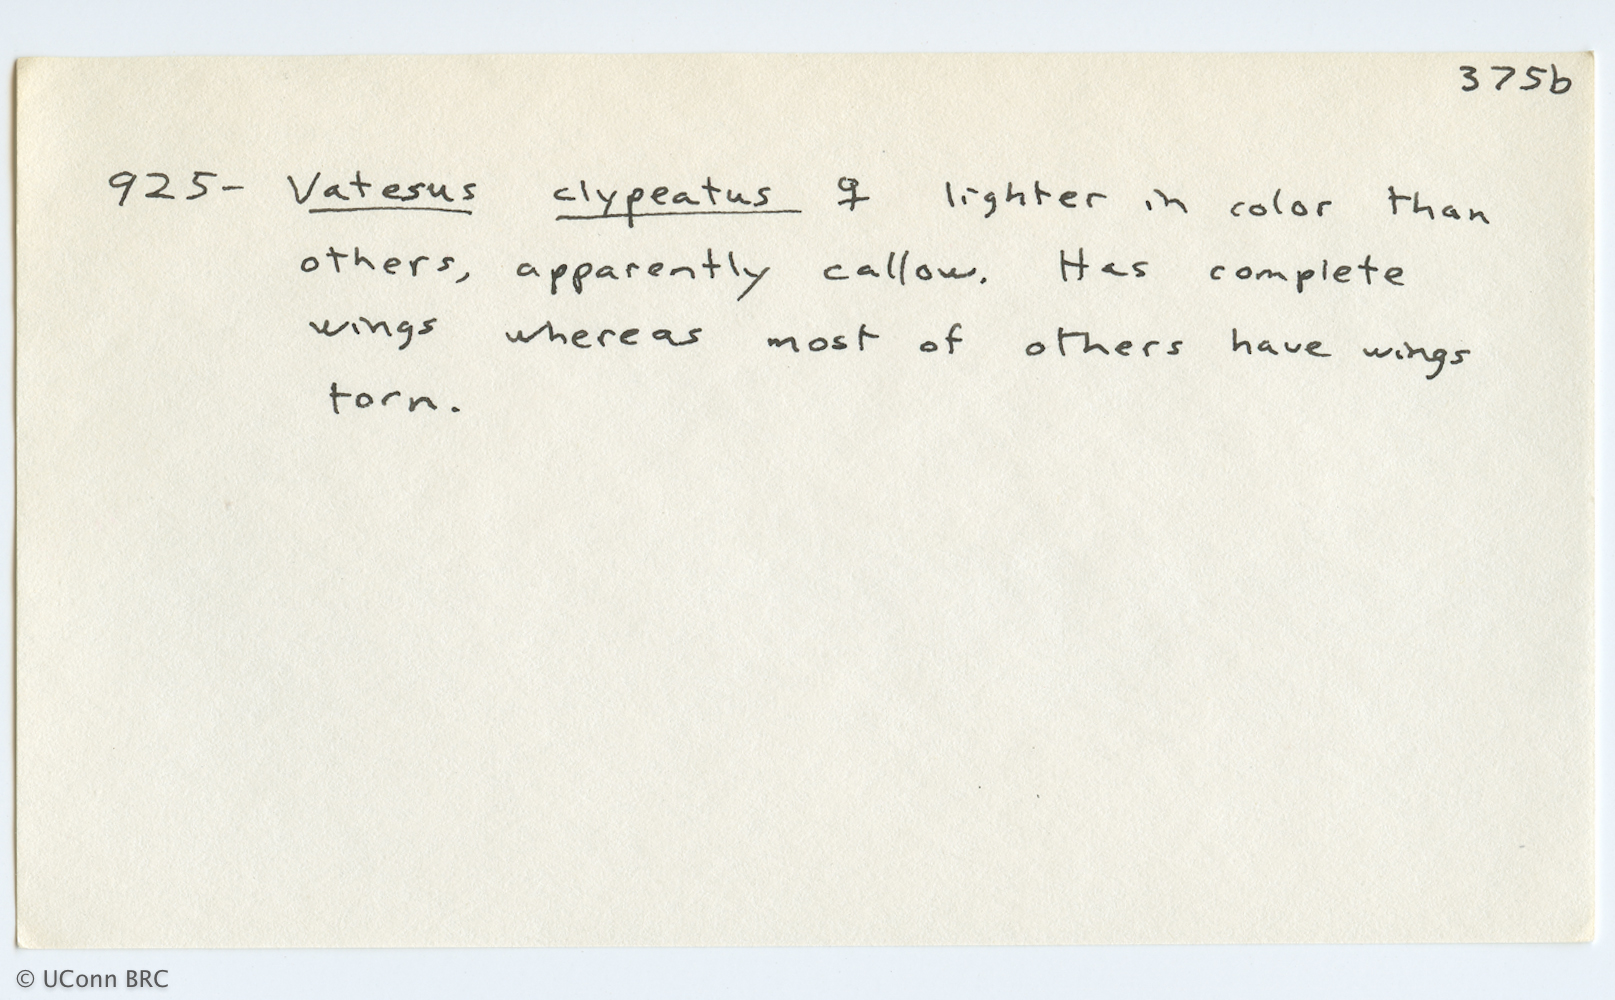 375b
925- Vatesus clypeatus ♀ lighter in color than
others, apparently callow. Has complete
wings whereas most of others have wings
torn.
© UConn BRC